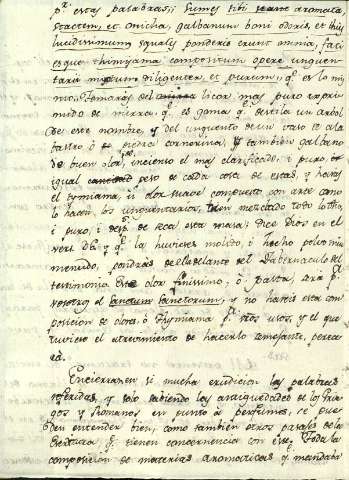 pr. estas palabras;; Sumes tibi aromata
stactem, et onicha, galbanum boni odoris, et thus
lucidissimum equalis ponderis erunt omnia, faci
esque thimyama compositum opere unguen
tarii mixtum diligenter, et purum; q.e es lo mi
mo. Tomaràs del licor mas puro expri
mido de mirra, q.e es goma q.e destila un arbol
de este nombre, y del unguento de un vaso de ala
bastro ò de piedra cornerina, y tambien galbano
de buen olor, incienso el mas clarificado, i puro, de
igual cantidad peso de cada cosa de estas, y haràs
el tymiama, ù olor suave compuesto con arte como
lo hacen los unguentarios, bien mezclado todo lo dho,
i puro, i desp.s de seca esta masa; Dice Dios en el
vers. 36; y q.e la huvieres molido, ò hecho polvo mui
menudo, pondras de ella delante del Tabernaculo del
testimonio este olor finissimo, ò pasta, serà p.a
vosotros el Sanctum Sanctorum, y no hareis esta com
posicion de olores ò thymiama p.a vros usos, y el que
tuviere el atrevimiento de hacerlo semejante, perece
rà.
Encierranse mucha erudicion las palabras
referidas, y solo sabiendo las antiguedades de los Grie
gos y Romanos en punto de perfumes, se pue
den entender bien, como tambien otros pasages de la
Escritura, q.e tienen concernencia con este. Toda la
composicion de materias aromaticas q.e mandaba